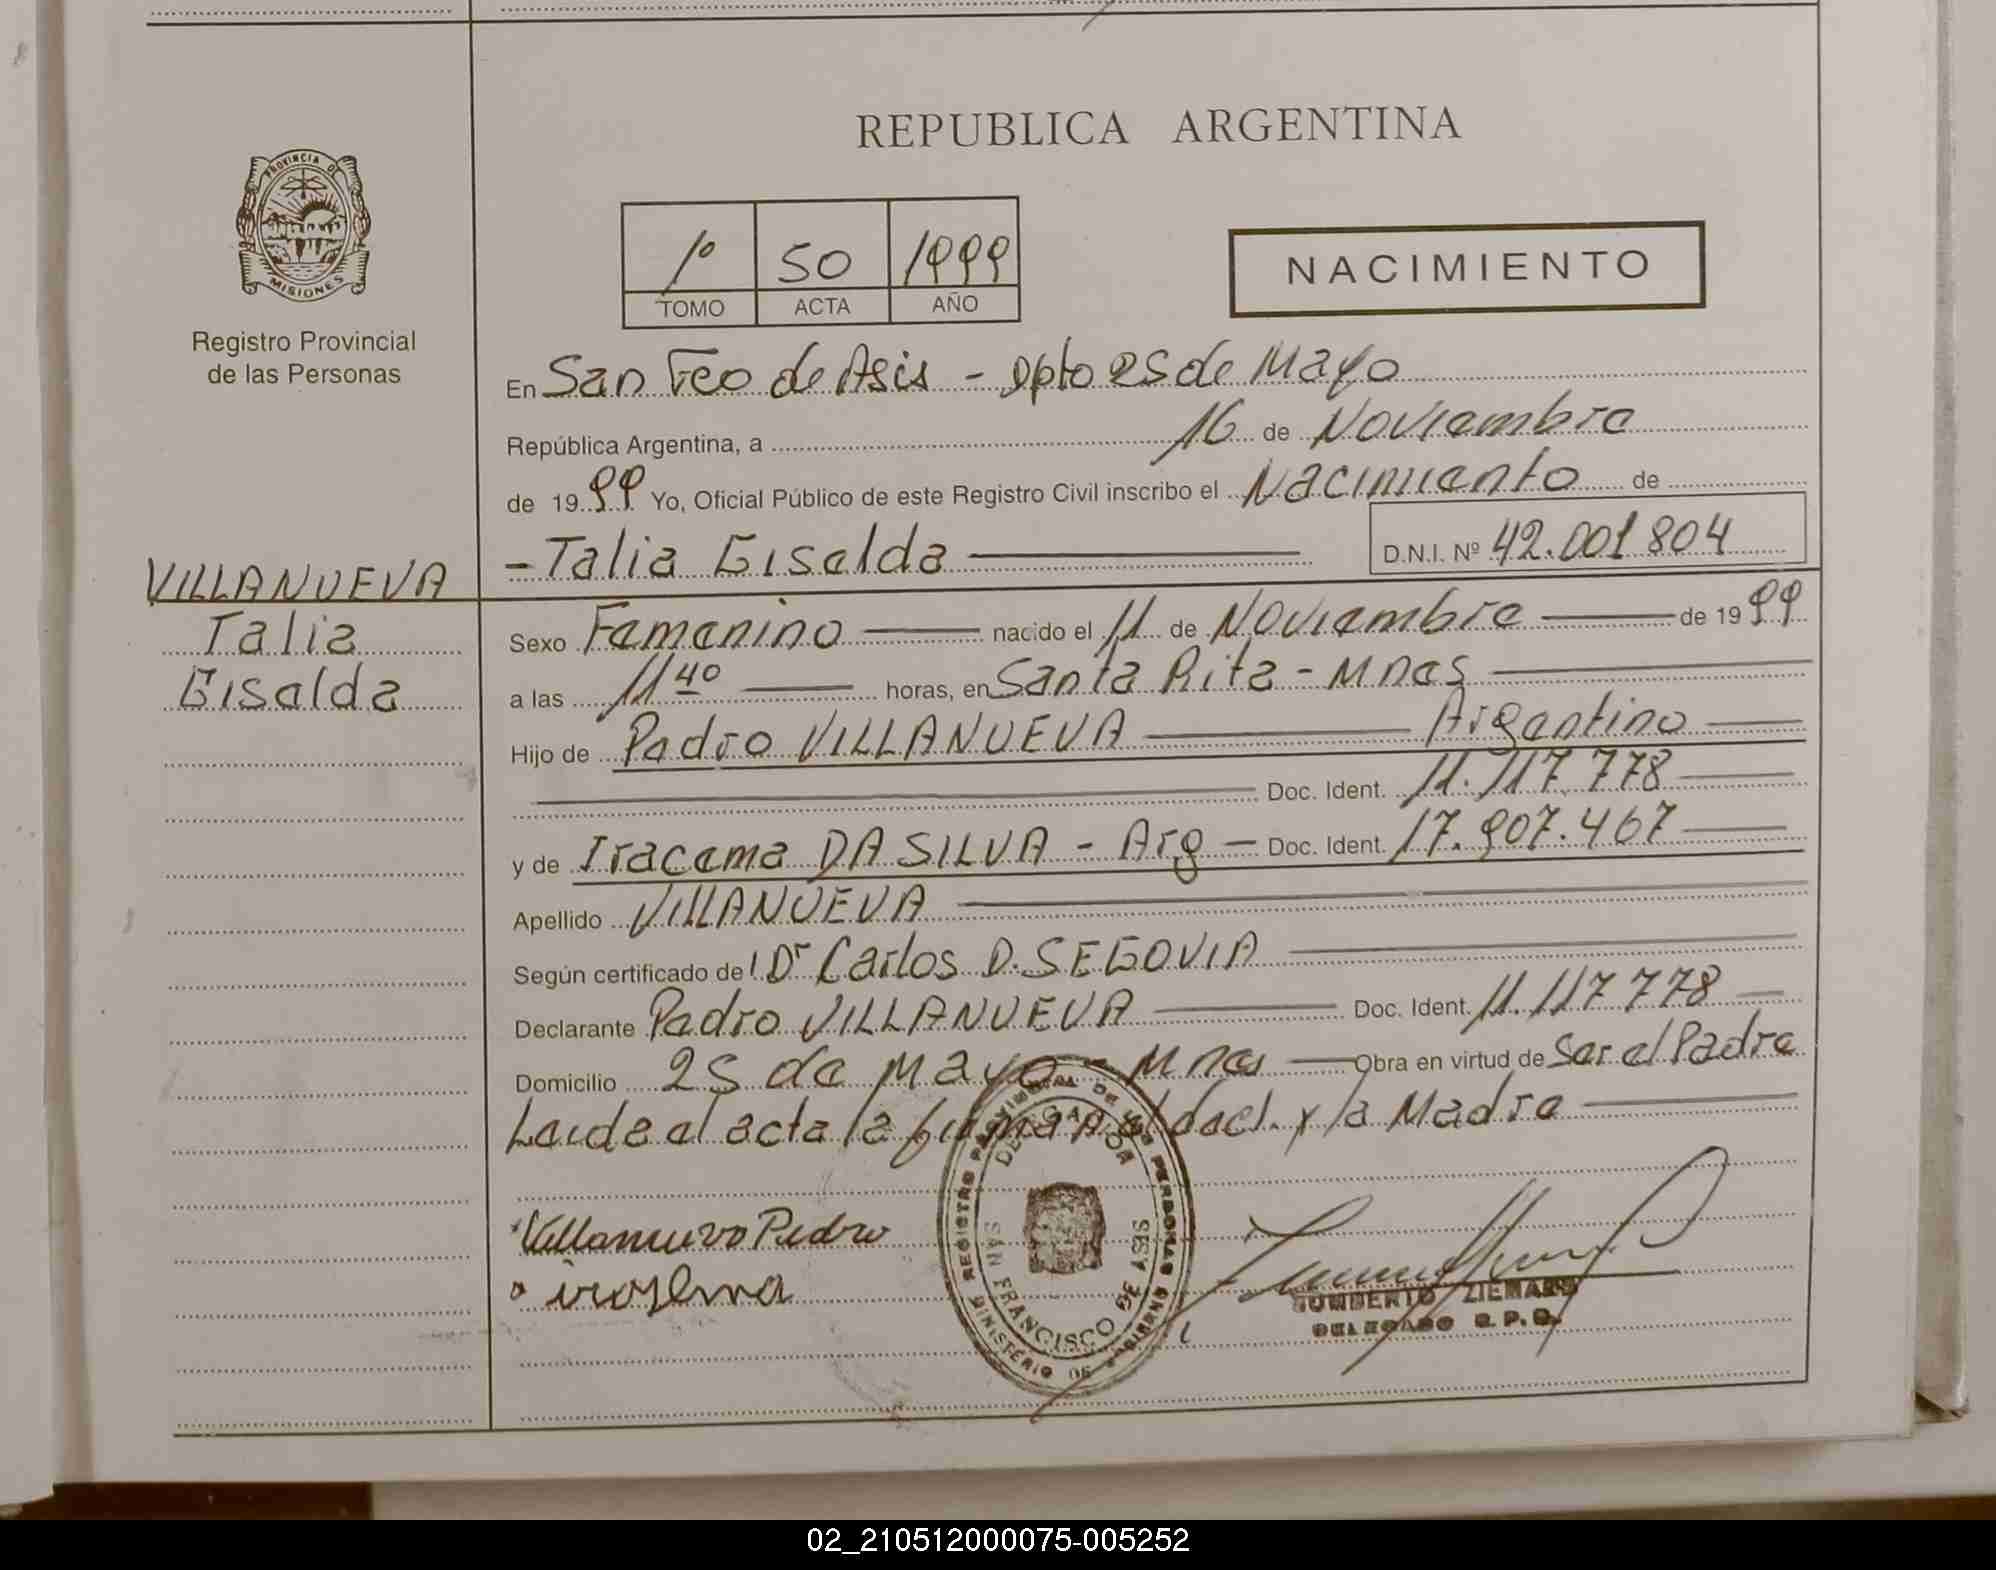 REPUBLICA ARGENTINA
PROVINCIA DE
MISIONES
Registro Provincial
de las Personas
1º 50 1999
TOMO ACTA AÑO
NACIMIENTO
En San Fco de Asis - Dpto 25 de Mayo
República Argentina, a 16 de Noviembre
de 1999 Yo, Oficial Público de este Registro Civil inscribo el Nacimiento de
- Talia Giselda D.N.I. Nº 42.001804
VILLANUEVA
Talia
Giselda
Sexo Femenino nacido el 11 de Noviembre de 1999
a las 11 40 horas, en Santa Rita - Mnes
Hijo de Pedro VILLANUEVA Argentino
Doc. Ident. 11.117.778
y de Iracema DA SILVA - Arg Doc. Ident. 17.907.467
Apellido VILLANUEVA
Según certificado del Dr Carlos D. SEGOVIA
Declarante Pedro VILLANUEVA Doc. Ident. 11.117778
Domicilio 25 de Mayo - Mnes Obra en virtud de Ser el Padre
Leida el acta la firman el decl. y la Madre
REGISTRO PROVINCIAL DE LAS PERSONAS
DELEGACION
SAN FRANCISCO DE ASIS
MINISTERIO DE
Villanueva Pedro
HUMBERTO ZIEMANN
DELEGADO R.P.P.
02_210512000075-005252